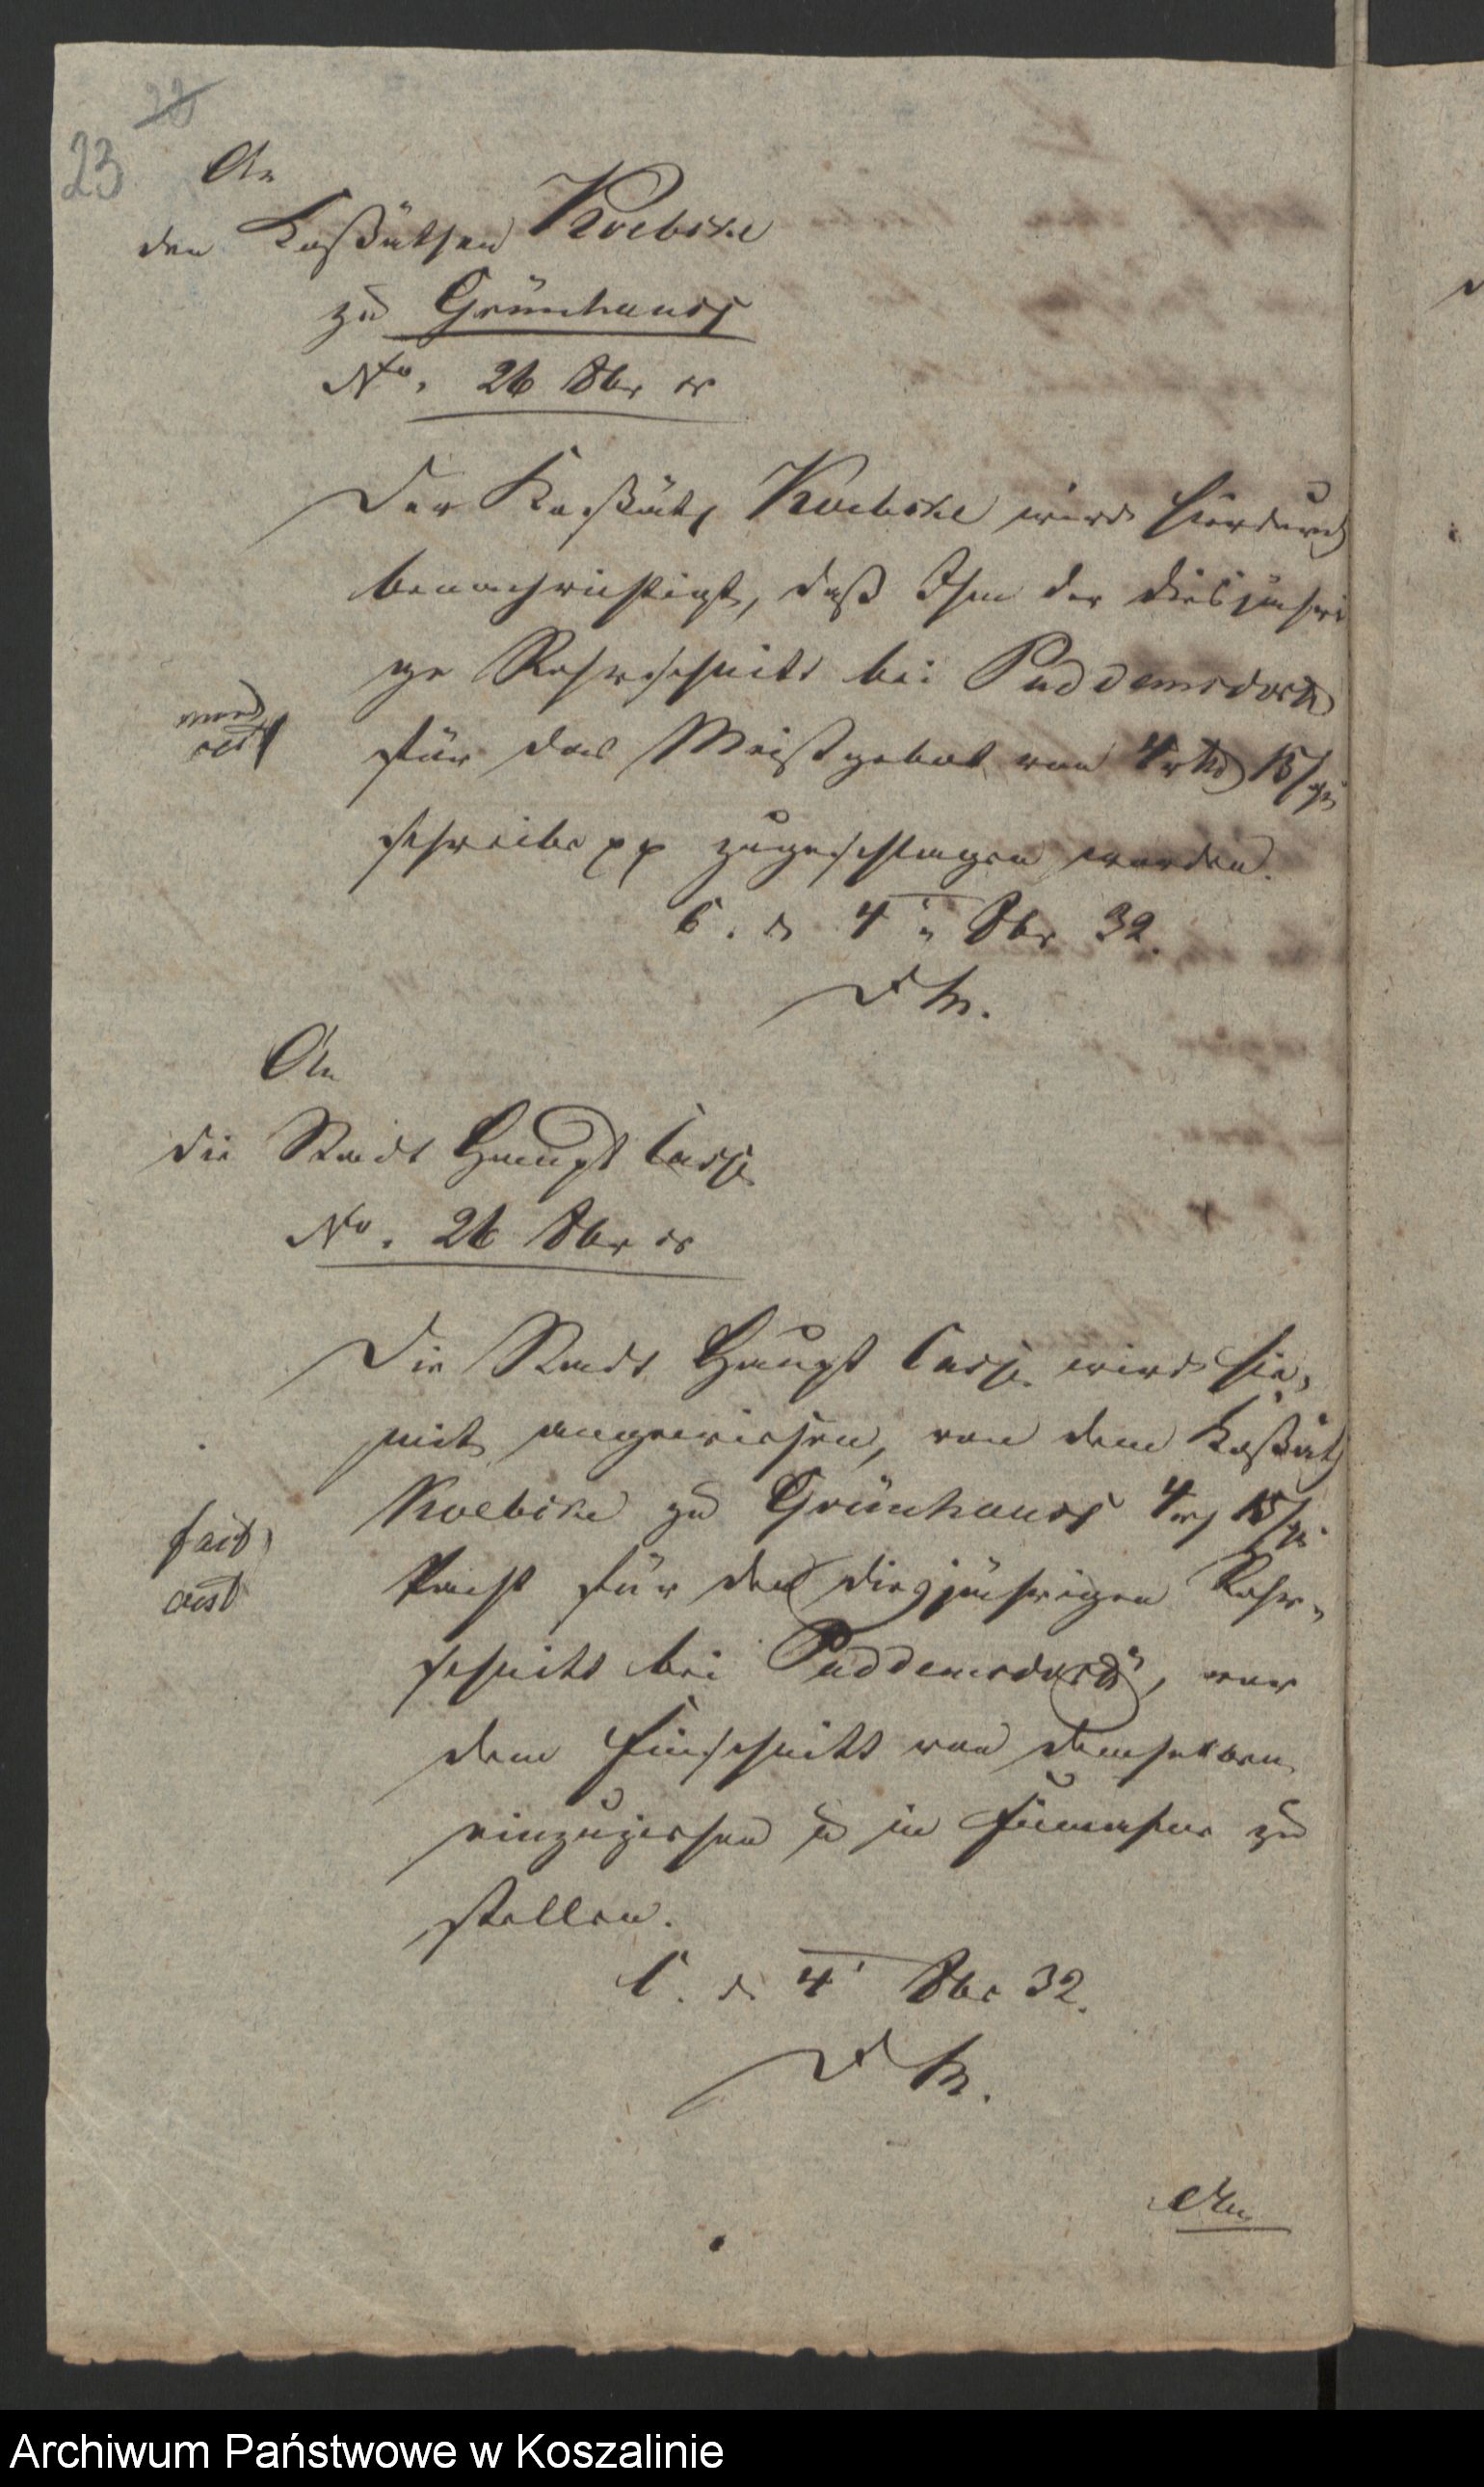 22
23
An
den Kossäthen Koebcke
zu Grünhauss
No. 26 8br cr
Der Kossäth Koebcke wird hierdurch
benachrichtigt, daß Ihm der diesjähri
ge Rohrschnitt bei Puddemsdorff
für das Meistgebot von 4 rth 15 sgr
schreibe pp zugeschlagen worden.
C. d 4 8br 32.
D M.
An
die Stadt Haupt Casse
No. 26 8br cr
Die Stadt Haupt Casse wird hie,
mit angewiesen, von dem Kossäth
Koebcke zu Grünhauss 4 r 15 sgr
fact
Pacht für den diesjährigen Rohr,
schnitt bei Puddemsdorff, vor
dem Einschnitt von demselben
einzuziehen u in Einnahme zu
stellen.
C. d. 4 8br 32.
D M.
An
Archiwum Państwowe w Koszalinie